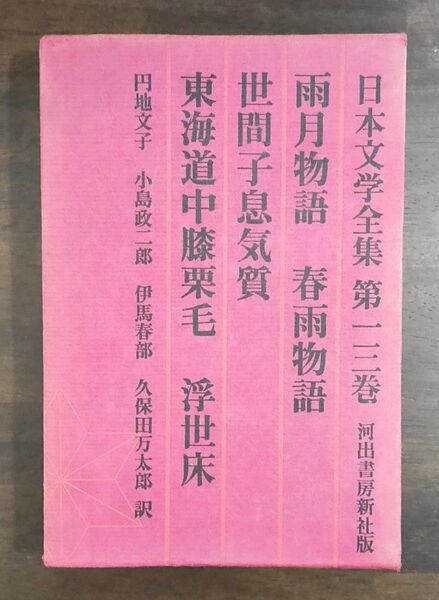 日本文学全集 第一三巻 河出書房新社版
雨月物語 春雨物語
世間子息気質
東海道中膝栗毛 浮世床
円地文子 小島政二郎 伊馬春部 久保田万太郎 訳